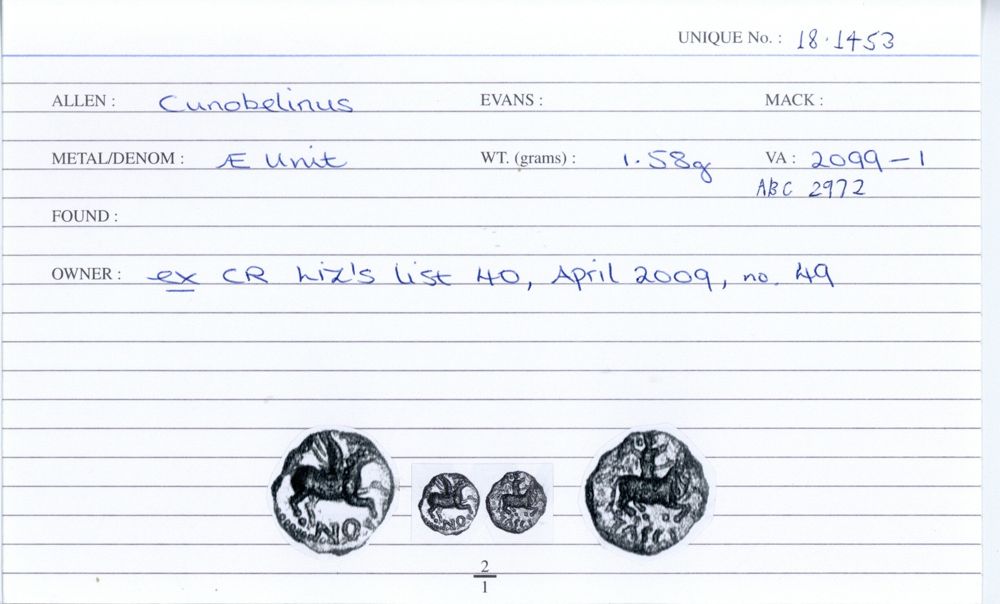 UNIQUE No. : 18.1453
ALLEN : Cunobelinus EVANS : MACK :
METAL/DENOM : Æ Unit WT. (grams) : 1.58g VA : 2099-1
ABC 2972
FOUND :
OWNER : ex CR Liz's list 40, April 2009, no. 49
2
1